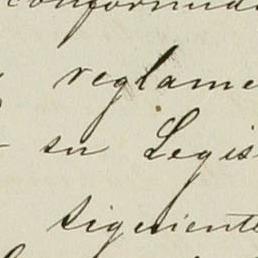 conformida
reglame
su Legis
sigeiente